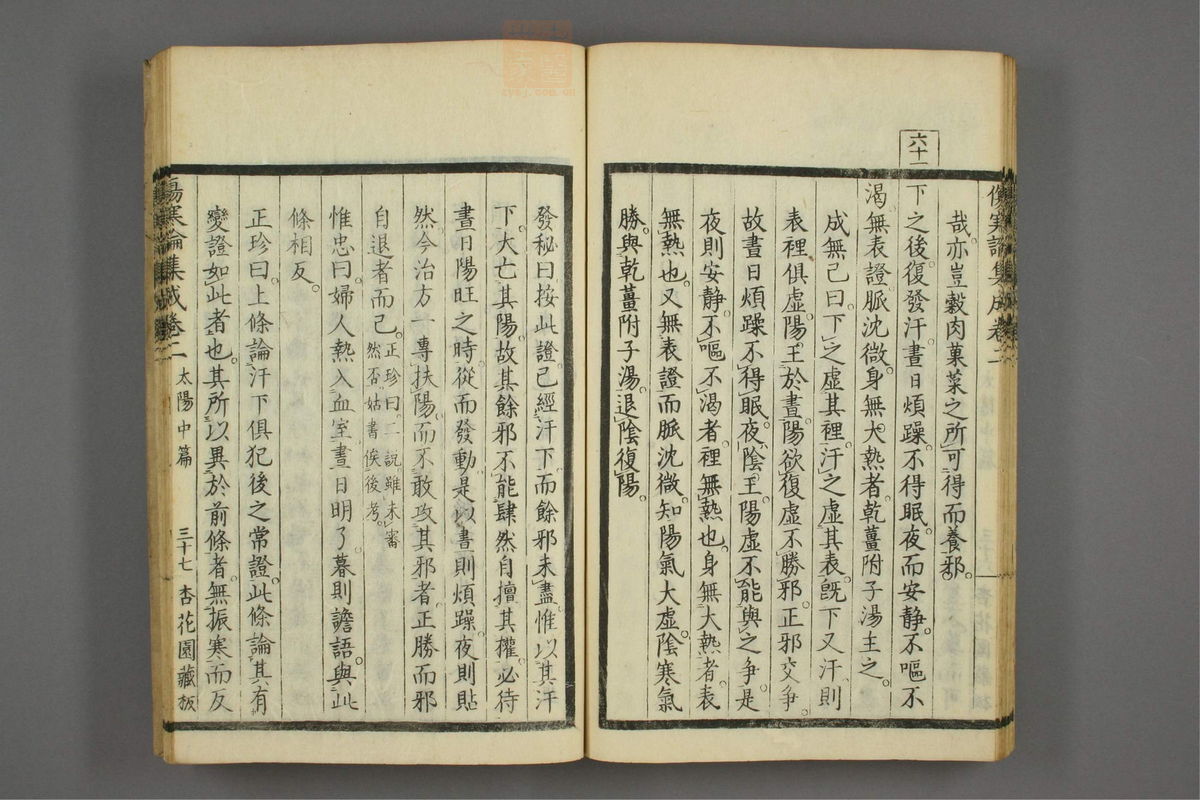 六十一
傷寒論集成卷二
哉。亦豈穀肉菓菜之所可得而養邪。
下之後。復發汗。晝日煩躁。不得眠。夜而安静。不嘔不
渴。無表證。脈沈微。身無大熱者。乾薑附子湯主之。
成無己曰。下之虛其裡。汗之虛其表。既下又汗。則
表裡俱虛。陽王於晝。陽欲復。虛不勝邪。正邪交爭。
故晝日煩躁不得眠。夜陰王。陽虛不能與之爭。是
夜則安静。不嘔不渴者。裡無熱也。身無大熱者。表
無熱也。又無表證。而脈沈微。知陽氣大虛。陰寒氣
勝。與乾薑附子湯。退陰復陽。
發秘曰。按此證。已經汗下。而餘邪未盡。惟以其汗
下。大亡其陽。故其餘邪不能肆然自擅其權。必待
晝日陽旺之時。從而發動。是以晝則煩躁。夜則貼
然。今治方一專扶陽。而不敢攻其邪者。正勝而邪
自退者而已。正珍曰。二說雖未審
然否。姑書俟後考。
惟忠曰。婦人熱入血室。晝日明了。暮則譫語。與此
條相反。
正珍曰。上條論汗下俱犯後之常證。此條論其有
變證如此者也。其所以異於前條者。無振寒而反
傷寒論集成卷二 太陽中篇 三十七 杏花園藏板
zysj.com.cn